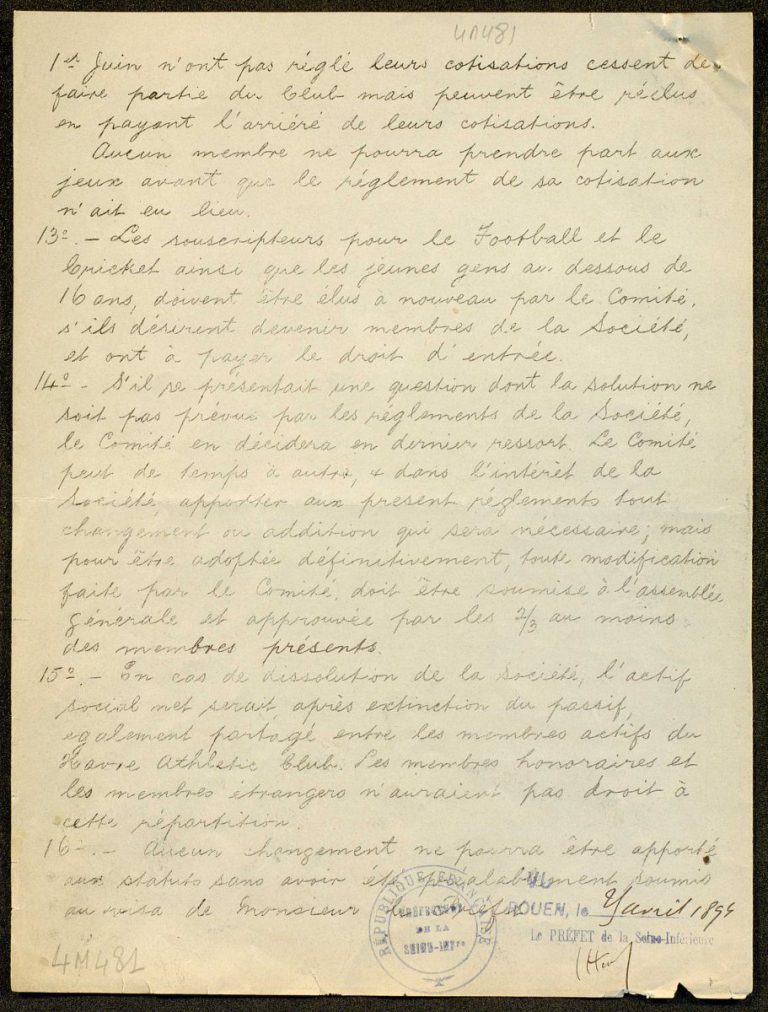 4M481
1er Juin n'ont pas réglé leurs cotisations cessent de
faire partie du Club mais peuvent être réélus
en payant l'arriéré de leurs cotisations.
Aucun membre ne pourra prendre part aux
jeux avant que le réglement de sa cotisation
n'ait eu lieu.
13º. - Les souscripteurs pour le Football et le
Cricket ainsi que les jeunes gens au dessous de
16 ans, doivent être élus à nouveau par le Comité,
s'ils désirent devenir membres de la Société,
et ont à payer le droit d'entrée.
14º - S'il se présentait une question dont la solution ne
soit pas prévue par les réglements de la Société,
le Comité en décidera en dernier ressort. Le Comité
peut de temps à autre, & dans l'intérêt de la
Société apporter aux present réglements tout
changement ou addition qui sera nécessaire; mais
pour être adoptée définitivement, toute modification
faite par le Comité, doit être soumise à l'assemblée
générale et approuvée par les 2/3 au moins
des membres présents.
15º. - En cas de dissolution de la Société, l'actif
social net serait après extinction du passif,
également partagé entre les membres actifs du
Havre Athletic Club. Les membres honoraires et
les membres étrangers n'auraient pas droit à
cette répartition.
16-. - Aucun changement ne pourra être apporté
aux statuts sans avoir été préalablement soumis
au visa de Monsieur le Préfet
RÉPUBLIQUE FRANÇAISE
PRÉFECTURE
DE LA
SEINE-INFre
VU
ROUEN, le avril 1894
Le PRÉFET de la Seine-Inférieure
4M481